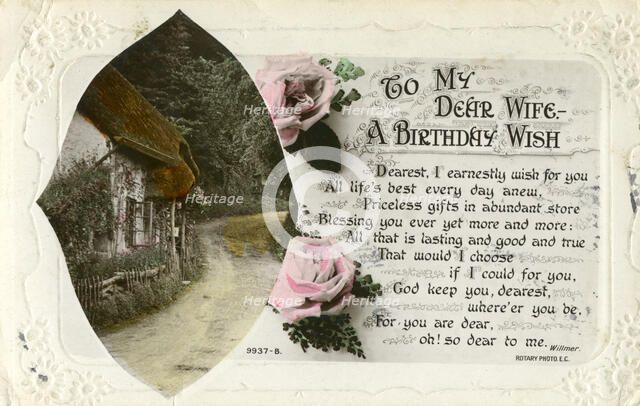 To My
Dear Wife.-
A Birthday Wish
Dearest, I earnestly wish for you
All life's best every day anew,
Priceless gifts in abundant store
Blessing you ever yet more and more:
All that is lasting and good and true
That would I choose
if I could for you,
God keep you, dearest,
where'er you be,
For you are dear,
oh! so dear to me.
Willmer.
9937-B.
ROTARY PHOTO. E.C.
Heritage
Heritage
Heritage
Heritage
Heritage
Heritage